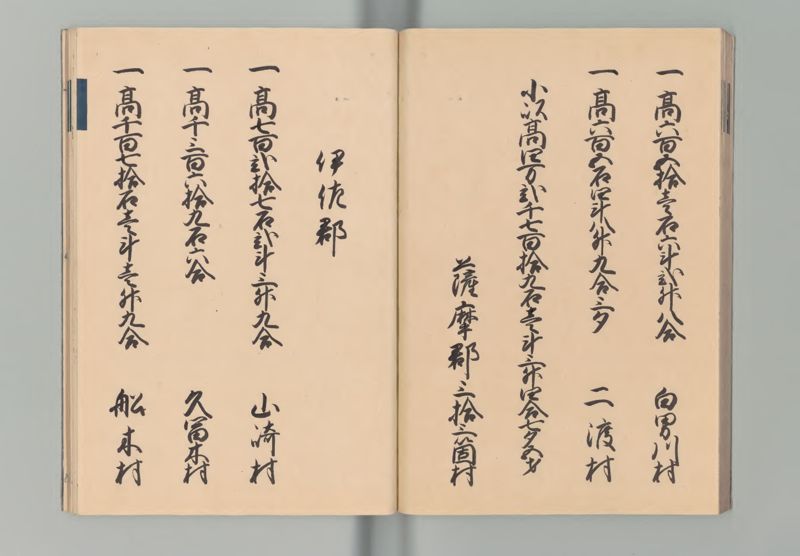 一 高六百五拾壱石六斗弐升八合 白男川村
一 高六百五石四斗八升九合三夕 二渡村
小以高四万弐千七百拾九石壱斗三升四合七夕五才
薩摩郡三拾三箇村
伊佐郡
一 高七百弐拾七石弐斗三升九合 山崎村
一 高千三百六拾九石六合 久冨木村
一 高千百七拾石壱斗壱升九合 船木村